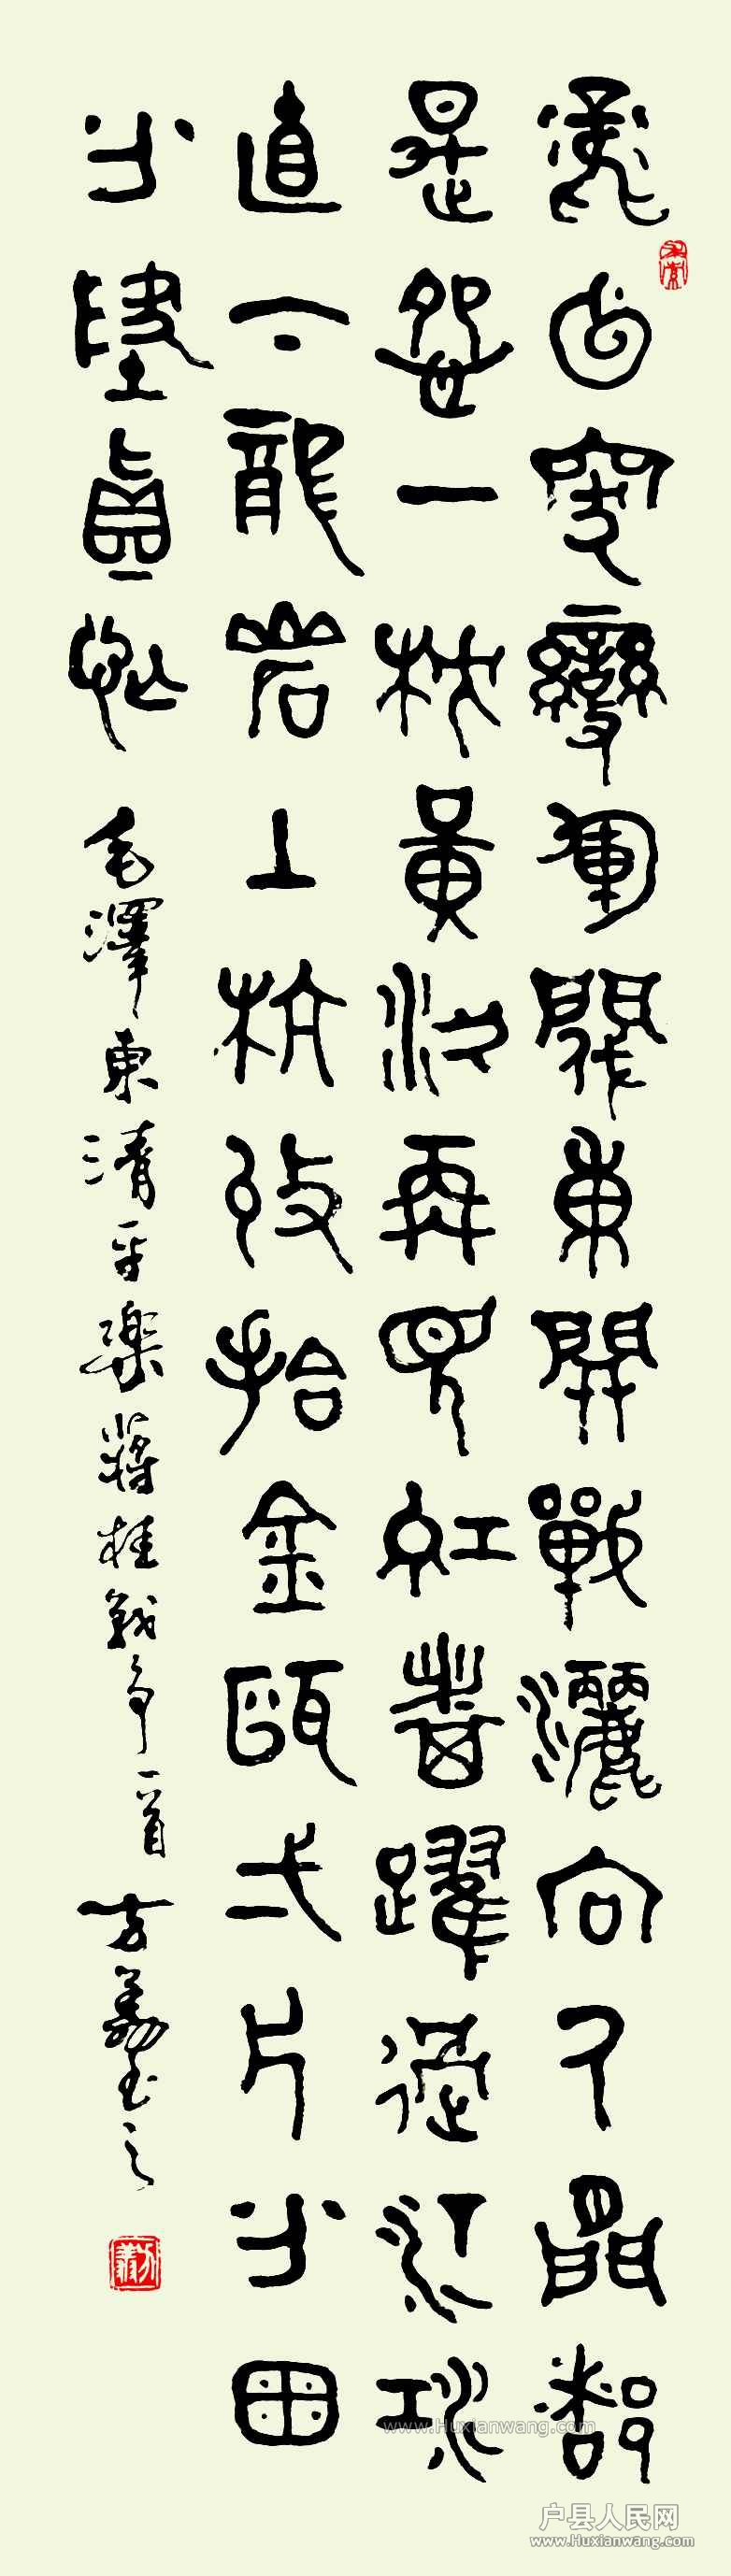 風云突變軍閥重開戰灑向人間都
是怨一枕黃粱再見紅旗躍過汀江
直下龍岩上杭收拾金甌一片分田
分地真忙 毛澤東清平樂蔣桂戰争一首 方義书之
www.Huxianwang.com
户县人民网
www.Huxianwang.com